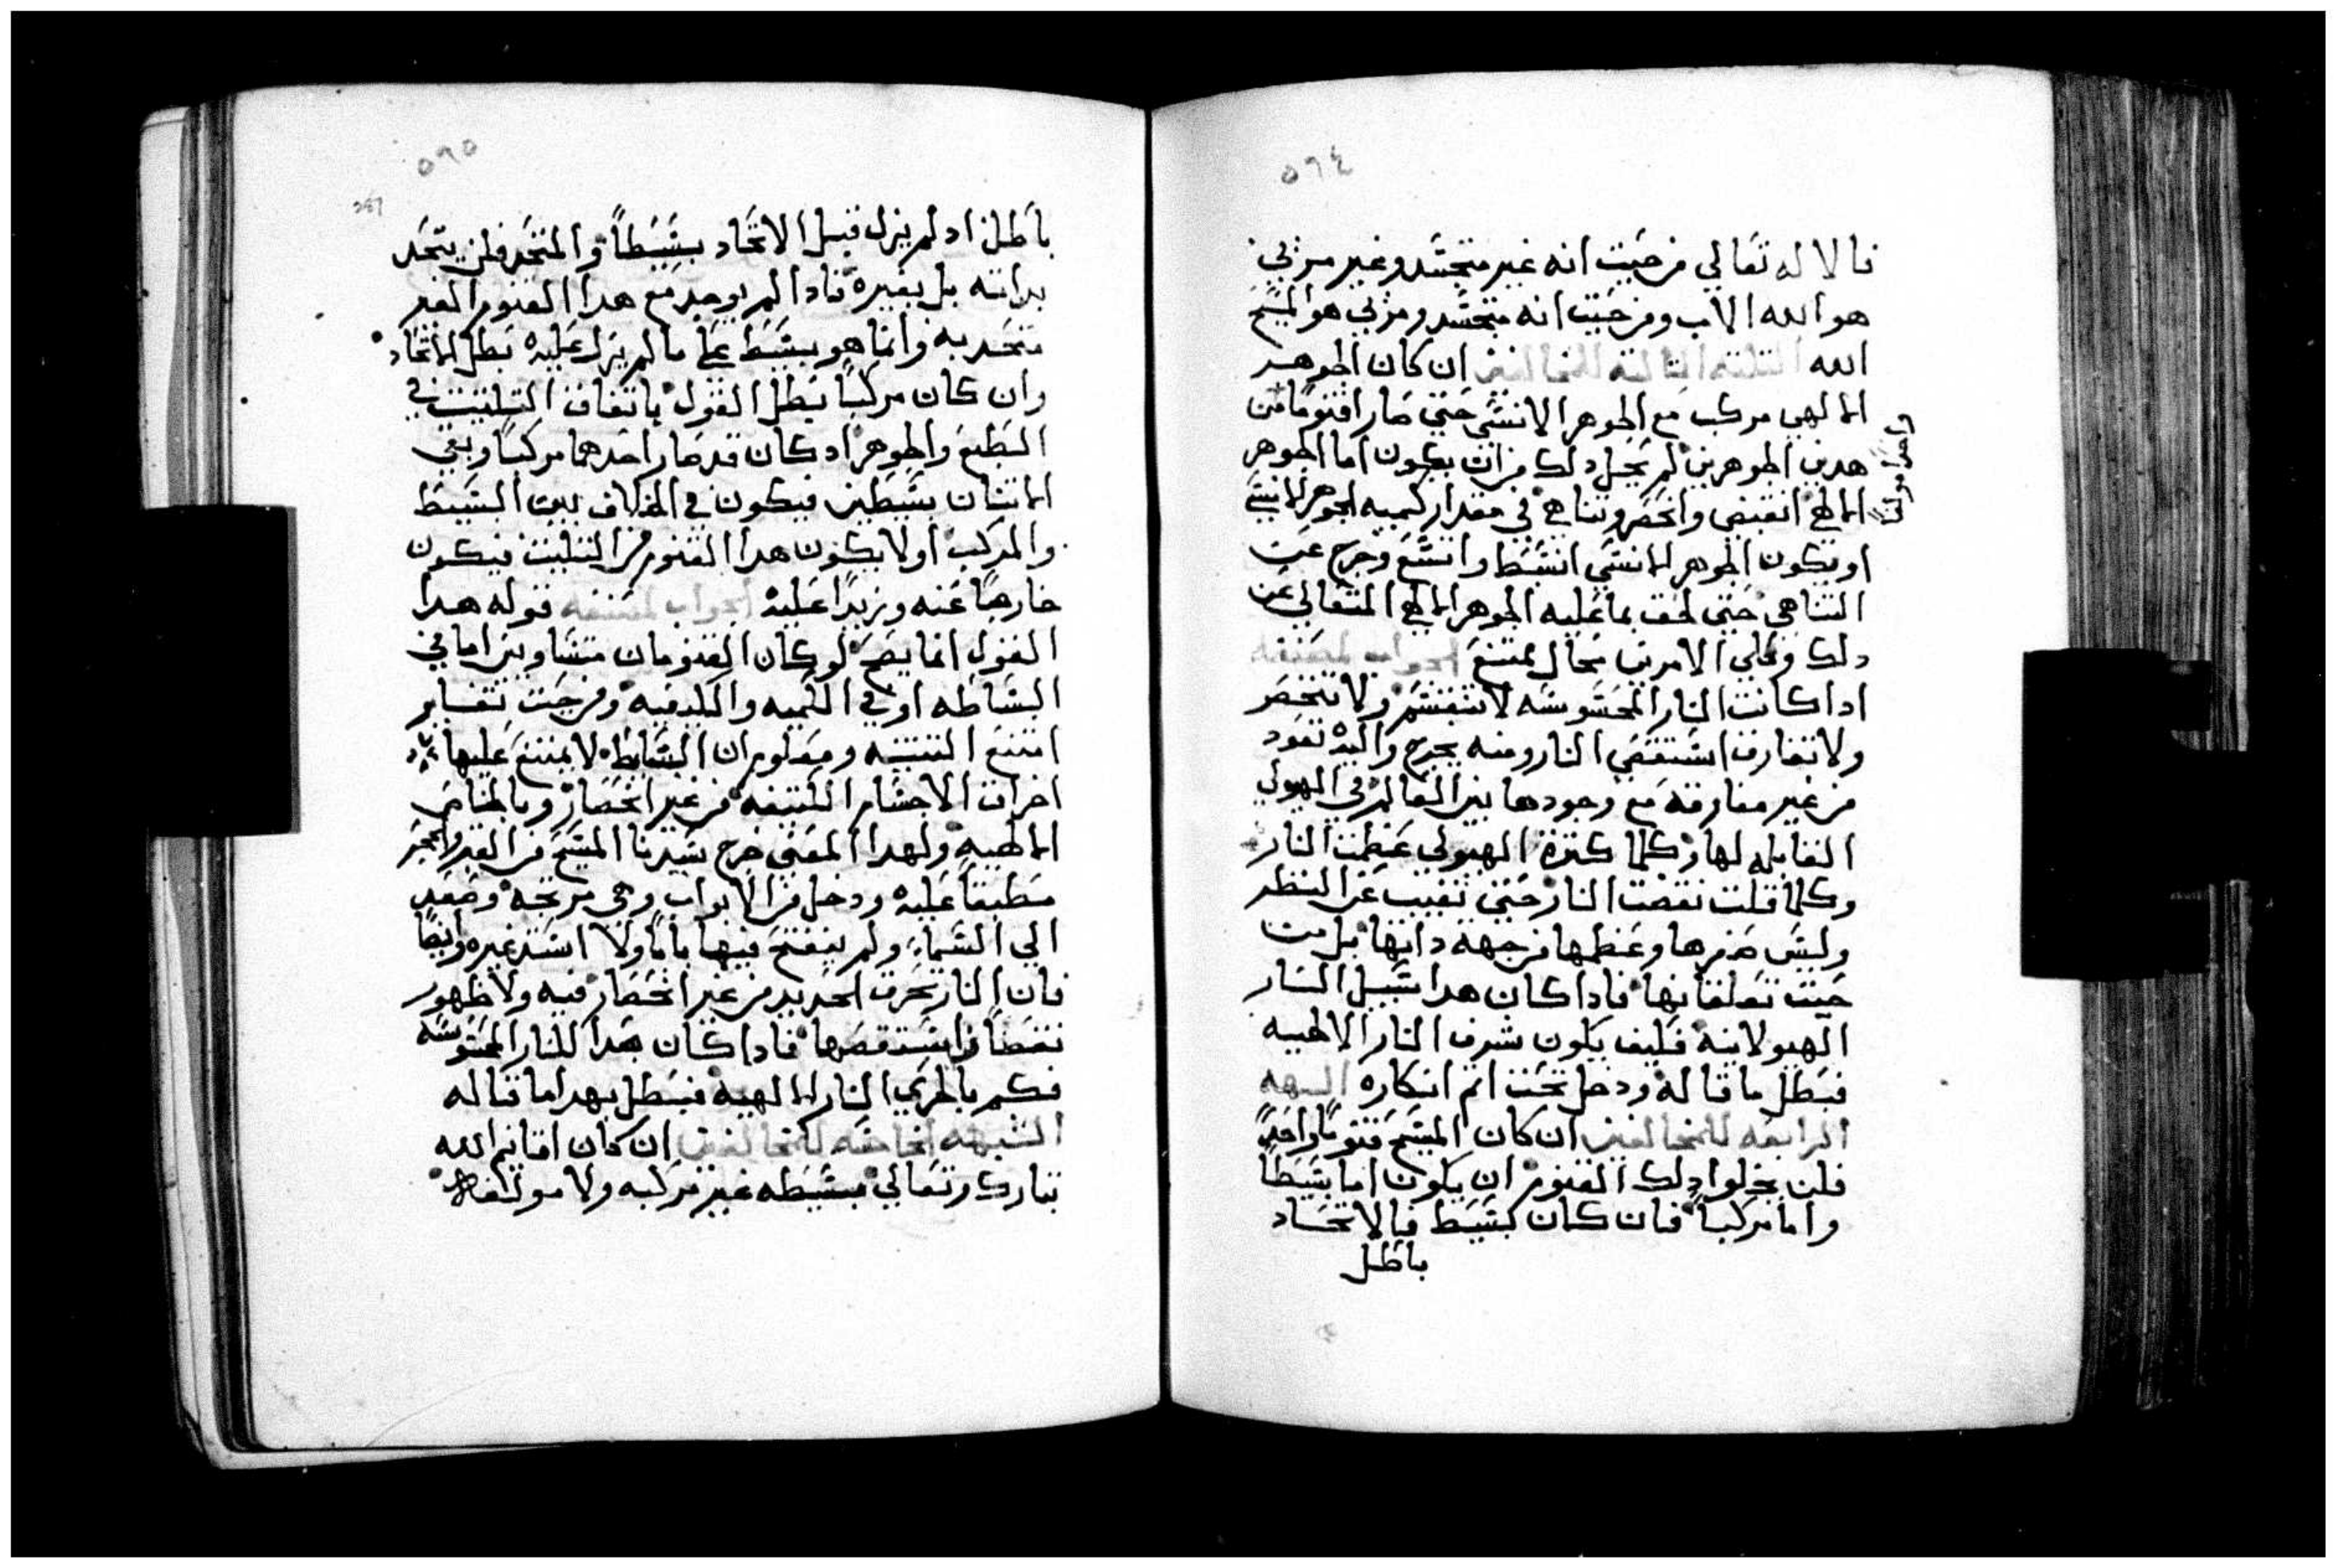 ٥٩٤
فالاله تعالي من حيت انه غير متجسد وغير مرئي
هو الله الاب ومن حيت انه متجسد ومرئي هو المسيح
الله الثلثه الثالثه للمخالفين ان كان الجوهر
الالهي مركب مع الجوهر الانسي حتي صار اقنوما من
هدين الجوهرين لم يخل دلك من ان يكون اما الجوهر
الالهي انقبض وانحصر وتناهي في مقدار كميه الجوهر الانسي
او يكون الجوهر الانسي انبسط واتسع وخرج عن
التناهي حتي لحق بما عليه الجوهر الالهي المتعالي عن
دلك وكلي الامرين محال ممتنع الجواب لمصنفه
ادا كانت النار المحسوسه لا تنقسم ولا تنحصر
ولا تفارق استقصي النار ومنه يخرج واليه تعود
من غير مفارقه مع وجودها بين العالم في الهيولي
القابله لها وكلما كترة الهيولي عظمت النار
وكلما قلت نقصت النار حتي تغيب عن النظر
وليس صغرها وعظمها من جهة داتها بل من
حيت تعلقاتها فادا كان هدا سبيل النار
الهيولانيه فكيف يكون شرف النار الالهيه
فبطل ما قاله ودخل تحت اتم انكاره الشبهه
الرابعه للمخالفين ان كان المسيح قنوما واحدا
فلن يخلوا دلك القنوم ان يكون اما بسيطا
واما مركبا فان كان بسيط فالاتحاد
باطل
٥٩٥
باطل اد لم يزل قبل الاتحاد بسيطا والمتحد فلن يتحد
بداته بل بغيره فادا لم يوجد مع هدا القنوم الغير
متحد به وانما هو بسيط علي ما لم يزل عليه بطل الاتحاد
وان كان مركبا بطل القول باتفاق التتليت في
الطبع والجوهر اد كان قد صار احدهما مركبا وبقي
الاتنان بسيطين فيكون في الخلاف بين البسيط
والمركب او لا يكون هدا القنوم من التتليت فيكون
خارجا عنه وزيدا عليه الجواب لمصنفه قوله هدا
القول انما يصح لو كان القنومان متساويين اما في
البساطه او في الكميه والكيفيه ومن حيت تغاير
امتنع التتنيه ومعلوم ان البسايط لا يمتنع عليها
اخراق الاجسام الكتيفه من غير انحصار وبالخاص
الالهيه ولهدا المعني خرج سيدنا المسيح من القبر والحجر
مطبقا عليه ودخل من الابواب وهي مرتجه وصعد
الي السماء ولم ينفتح فيها بابا ولا استد غيره وايضا
فان النار تحرق الحديد من غير انحصار فيه ولا ظهور
نقصا من استقصها فادا كان هدا للنار المحسوسه
فكم بالحري النار الالهيه فبطل بهدا ما قاله
الشبهه الخامسه للمخالفين ان كان اقانيم الله
تبارك وتعالي بسيطه غير مركبه ولا مولفه